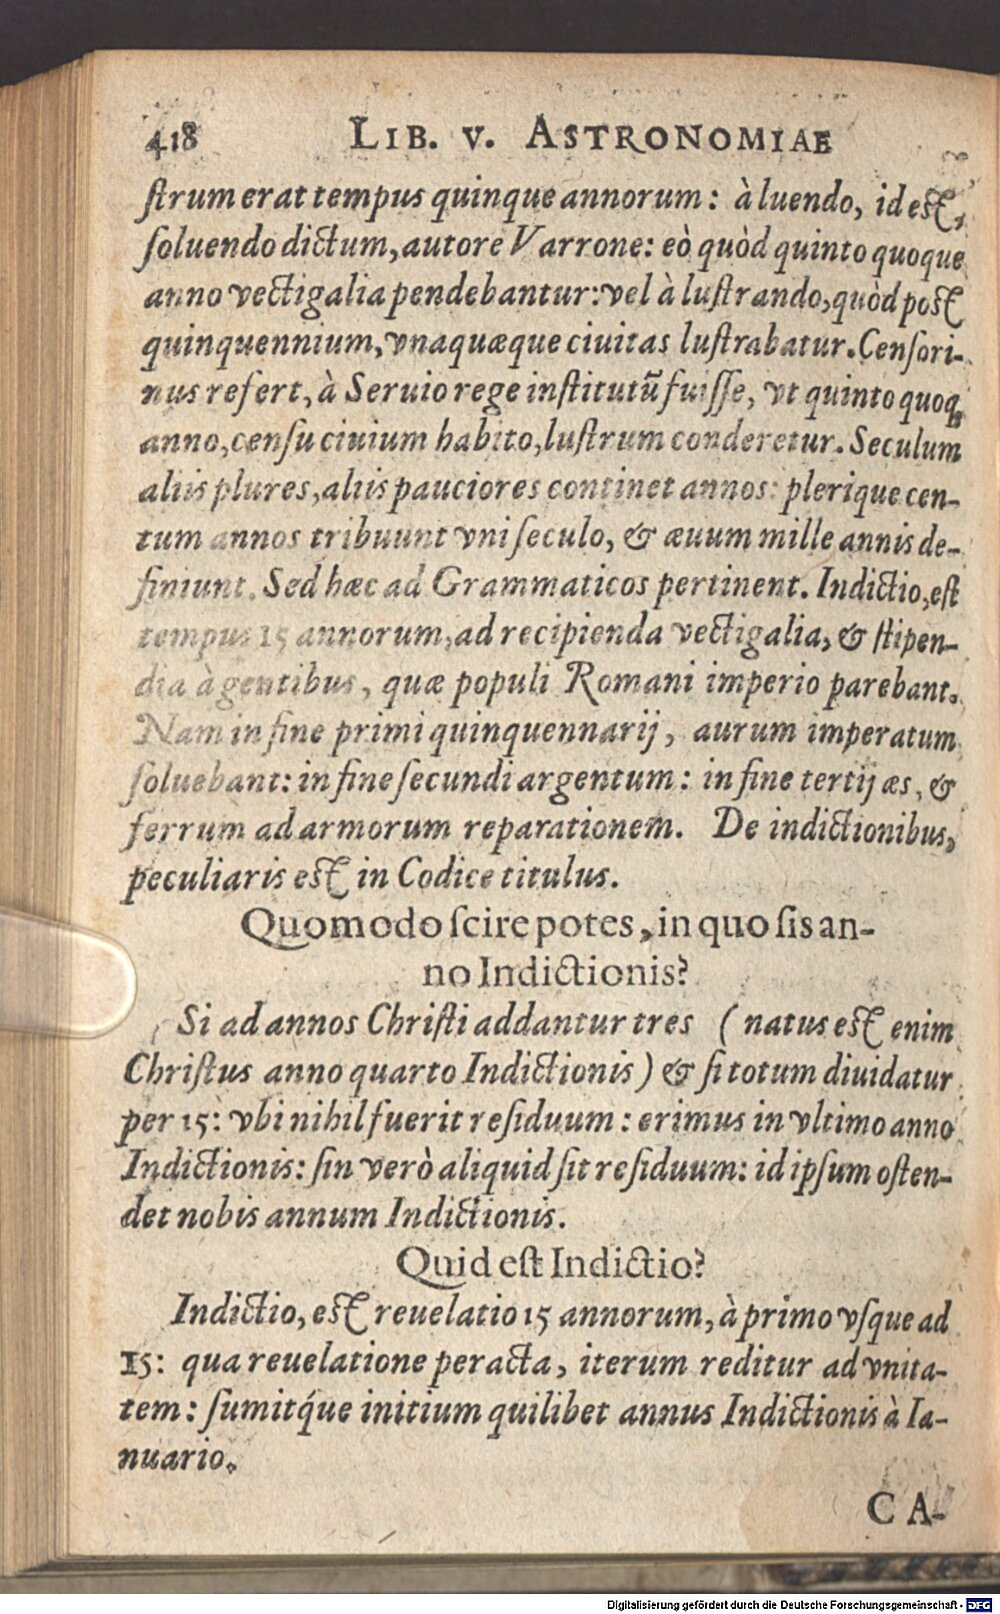 418 LIB. V. ASTRONOMIAE
ſtrum erat tempus quinque annorum: à luendo, id eſt,
ſoluendo dictum, autore Varrone: eò quòd quinto quoque
anno vectigalia pendebantur: vel à luſtrando, quòd poſt
quinquennium, vnaquæque ciuitas luſtrabatur. Cenſori-
nus refert, à Seruio rege inſtitutũ fuiſſe, vt quinto quoq
anno, cenſu ciuium habito, luſtrum conderetur. Seculum
aliis plures, aliis pauciores continet annos: plerique cen-
tum annos tribuunt vni ſeculo, & æuum mille annis de-
finiunt. Sed hæc ad Grammaticos pertinent. Indictio, eſt
tempus 15 annorum, ad recipienda vectigalia, & ſtipen-
dia à gentibus, quæ populi Romani imperio parebant.
Nam in fine primi quinquennarij, aurum imperatum
ſoluebant: in fine ſecundi argentum: in fine tertij æs, &
ferrum ad armorum reparationem. De indictionibus,
peculiaris eſt in Codice titulus.
Quomodo ſcire potes, in quo ſis an-
no Indictionis?
Si ad annos Chriſti addantur tres (natus eſt enim
Chriſtus anno quarto Indictionis) & ſi totum diuidatur
per 15: vbi nihil fuerit reſiduum: erimus in vltimo anno
Indictionis: ſin verò aliquid ſit reſiduum: id ipſum oſten-
det nobis annum Indictionis.
Quid eſt Indictio?
Indictio, eſt reuelatio 15 annorum, à primo vſque ad
15: qua reuelatione peracta, iterum reditur ad vnita-
tem: ſumitq́ue initium quilibet annus Indictionis à Ia-
nuario.
CA-
Digitalisierung gefördert durch die Deutsche Forschungsgemeinschaft - DFG